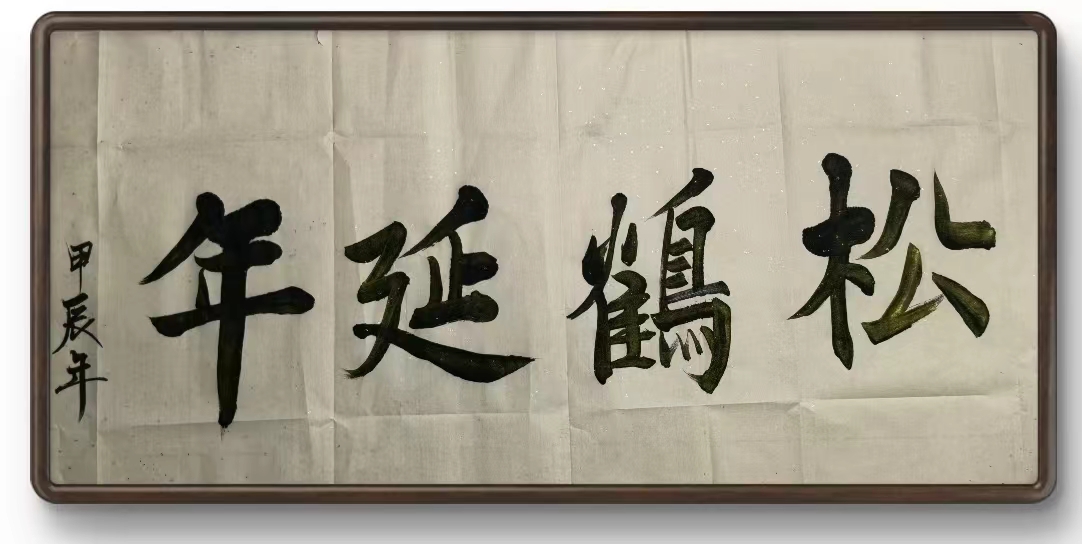 松鶴延年
甲辰年